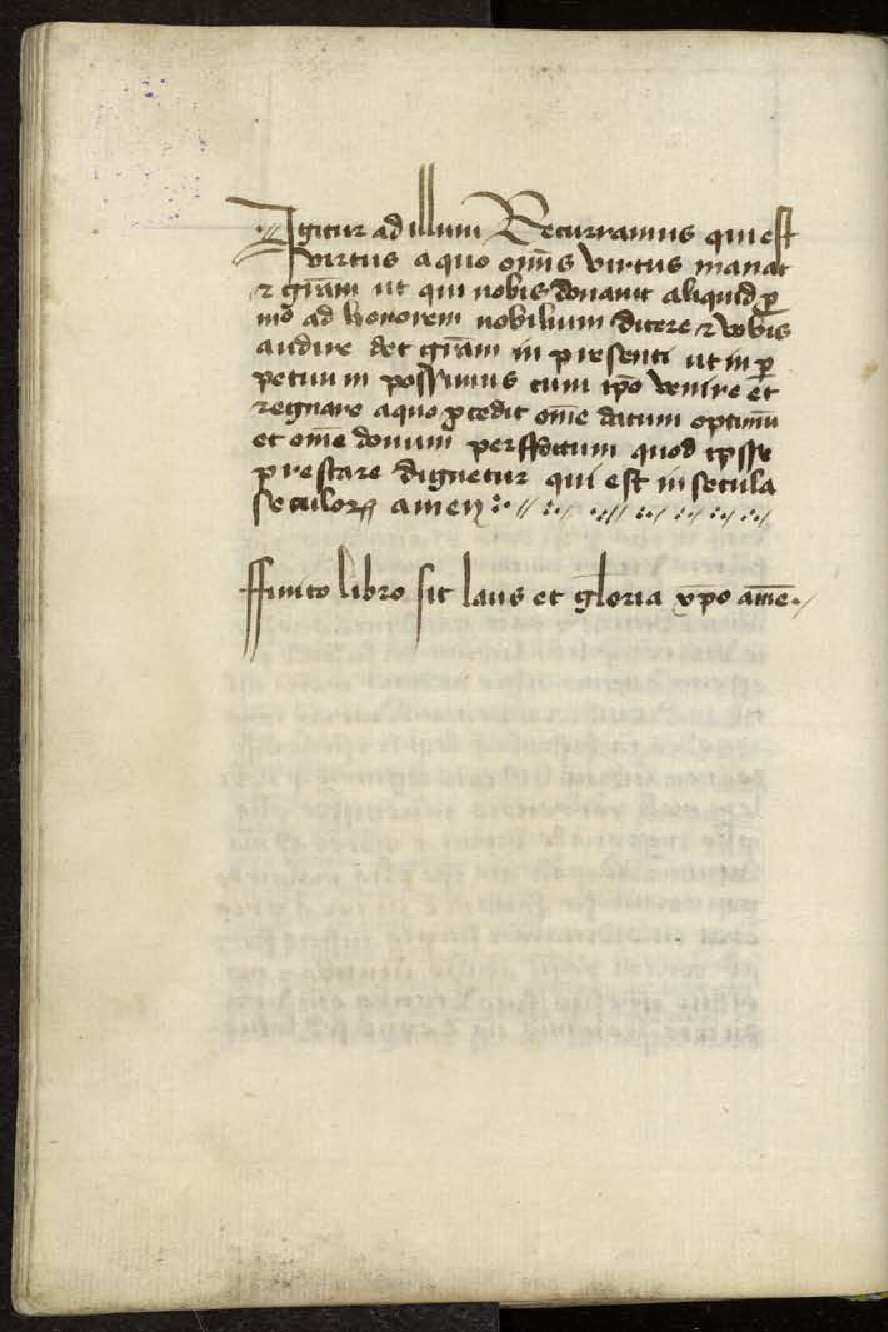 Igitur ad illum Recurramus qui est
virtus a quo om̄is virtus manat
⁊ grām ut qui nobis donauit aliquid p̱
mo ad honorem nobilium dicere ⁊ vobis
audire det grām in presenti ut in p̱
petuum possimus cum xp̄o venire et
regnare a quo ꝓcedit om̄e datum optimū
et om̄e donum perffectum quod ipsse
prestare dignetur qui est in secula
seculoꝝ amen
ffinito libro sit laus et gloria xp̄o amē